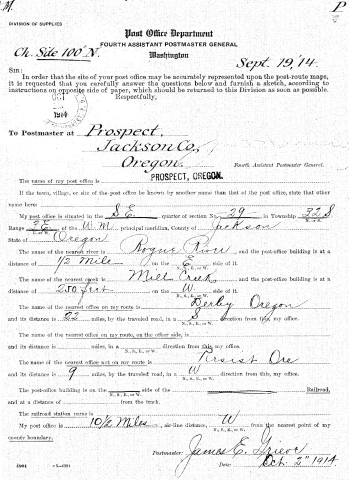 M.
P
DIVISION OF SUPPLIES
Post Office Department
FOURTH ASSISTANT POSTMASTER GENERAL
Washington
Ch. Site 100' N.
Sept. 19, '14.
Sir:
In order that the site of your post office may be accurately represented upon the post-route maps,
it is requested that you carefully answer the questions below and furnish a sketch, according to
instructions on opposite side of paper, which should be returned to this Division as soon as possible.
Respectfully,
OCT
1914
To Postmaster at Prospect,
Jackson Co.,
Oregon.
Fourth Assistant Postmaster General.
The name of my post office is PROSPECT, OREGON.
If the town, village, or site of the post office be known by another name than that of the post office, state that other
name here:
My post office is situated in the S.E. quarter of section No. 29 in Township 32 S
Range 3 E of the W. M. principal meridian, County of Jackson
State of Oregon
The name of the nearest river is Rogue River and the post-office building is at a
distance of 1/2 Mile on the E side of it.
The name of the nearest creek is Mill Creek and the post-office building is at a
distance of 250 feet on the W. side of it.
The name of the nearest office on my route is Derby Oregon
and its distance is 22 miles, by the traveled road, in a S direction from this my office.
The name of the nearest office on my route, on the other side, is
and its distance is miles, in a direction from this my office.
The name of the nearest office not on my route is Persist Ore
and its distance is 9 miles, by the traveled road, in a W direction from this, my office.
The post-office building is on the side of the Railroad,
and at a distance of from the track.
The railroad station name is
My post office is 10 1/2 Miles, air-line distance, W from the nearest point of my
county boundary.
Postmaster: James E. Grieve
Date: Oct. 2" 1914